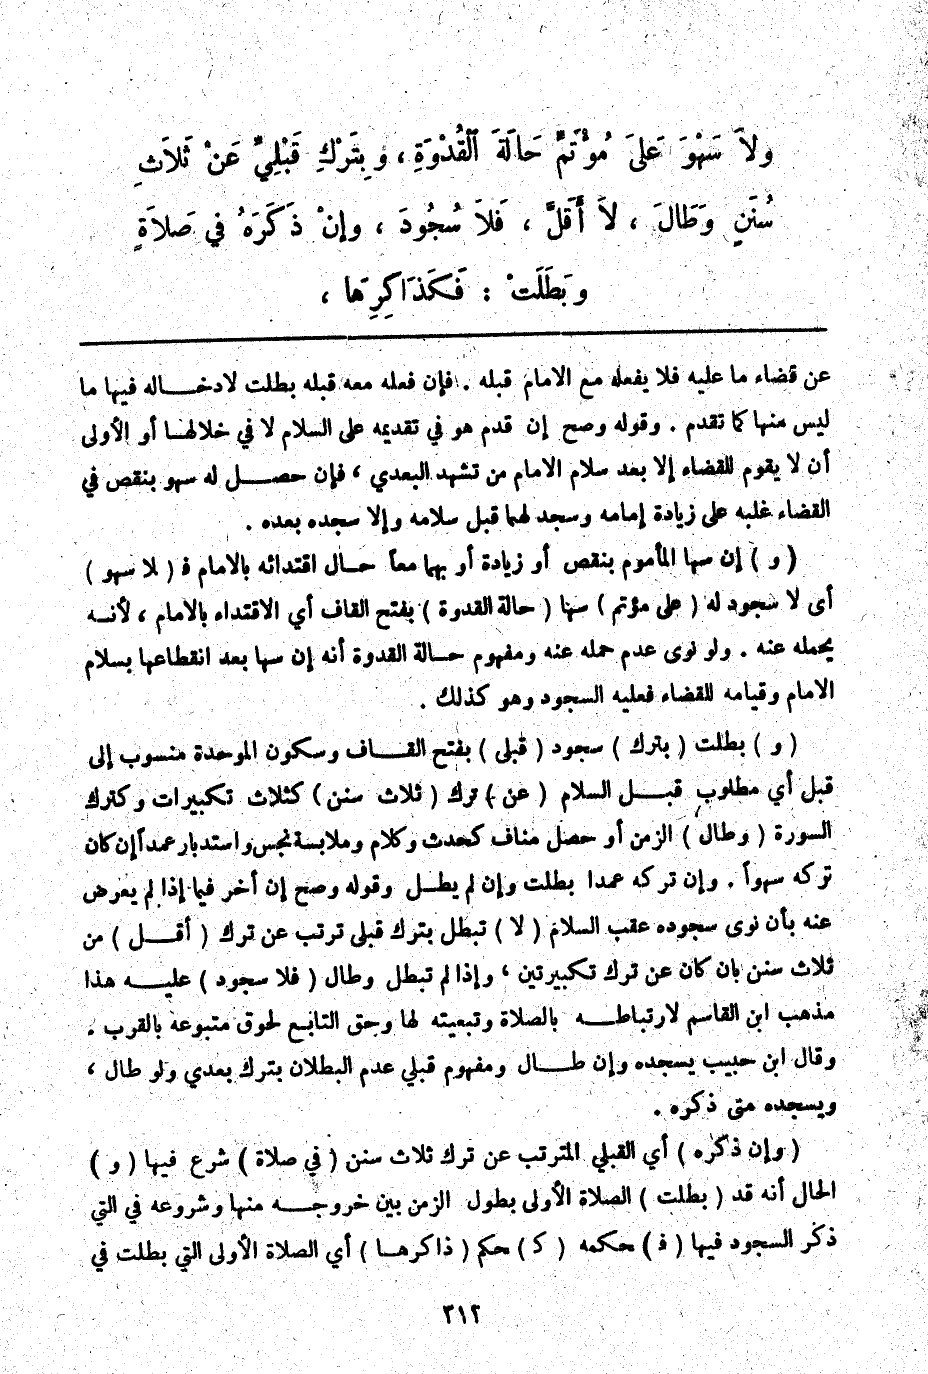 ولاَ سَهْوَ عَلىَ مُوْتَمٍّ حَالَةَ ٱلْقُدْوَةِ ، وَبِتَرْكِ قَبْلِيٍّ عَنْ ثَلاَثِ
سُنَنٍ وَطَالَ ، لاَ أَقَلَّ ، فَلاَ سُجُودَ ، وإنْ ذَكَرَهُ في صَلاَةٍ
وَبَطَلَتْ : فَكَذَاكِرِهَا ،
عن قضاء ما عليه فلا يفعله مع الامام قبله . فإن فعله معه قبله بطلت لادخاله فيها ما
ليس منها كما تقدم . وقوله وصح إن قدم هو في تقديمه على السلام لا في خلالها أو الأولى
أن لا يقوم للقضاء إلا بعد سلام الامام من تشهد البعدي ، فإن حصل له سهو بنقص في
القضاء غلبه على زيادة إمامه وسجد لهما قبل سلامه وإلا سجده بعده .
( و ) إن سها المأموم بنقص أو زيادة أو بهما معاً حال اقتدائه بالامام ف ( لا سهو )
أى لا سجود له ( على مؤتم ) سها ( حالة القدوة ) بفتح القاف أي الاقتداء بالامام ، لأنه
يحمله عنه . ولو نوى عدم حمله عنه ومفهوم حالة القدوة أنه إن سها بعد انقطاعها بسلام
الامام وقيامه للقضاء فعليه السجود وهو كذلك .
( و ) بطلت ( بترك ) سجود ( قبلى ) بفتح القاف وسكون الموحدة منسوب إلى
قبل أي مطلوب قبل السلام ( عن ) ترك ( ثلاث سنن ) كثلاث تكبيرات وكترك
السورة ( وطال ) الزمن أو حصل مناف كحدث وكلام وملابسة نجس واستدبار عمداً إن كان
تركه سهواً . وإن تركه عمدا بطلت وإن لم يطل وقوله وصح إن أخر فيما إذا لم يعرض
عنه بأن نوى سجوده عقب السلام ( لا ) تبطل بترك قبلى ترتب عن ترك ( أقل ) من
ثلاث سنن بان كان عن ترك تكبيرتين ، وإذا لم تبطل وطال ( فلا سجود ) عليه هذا
مذهب ابن القاسم لارتباطه بالصلاة وتبعيته لها وحق التابع لحوق متبوعه بالقرب .
وقال ابن حبيب يسجده وإن طال ومفهوم قبلي عدم البطلان بترك بعدي ولو طال ،
ويسجده متى ذكره .
( وإن ذكره ) أي القبلي المترتب عن ترك ثلاث سنن ( في صلاة ) شرع فيها ( و )
الحال أنه قد ( بطلت ) الصلاة الأولى بطول الزمن بين خروجه منها وشروعه في التي
ذكر السجود فيها ( ف ) حكمه ( ك ) حكم ( ذاكرها ) أي الصلاة الأولى التي بطلت في
٣١٢